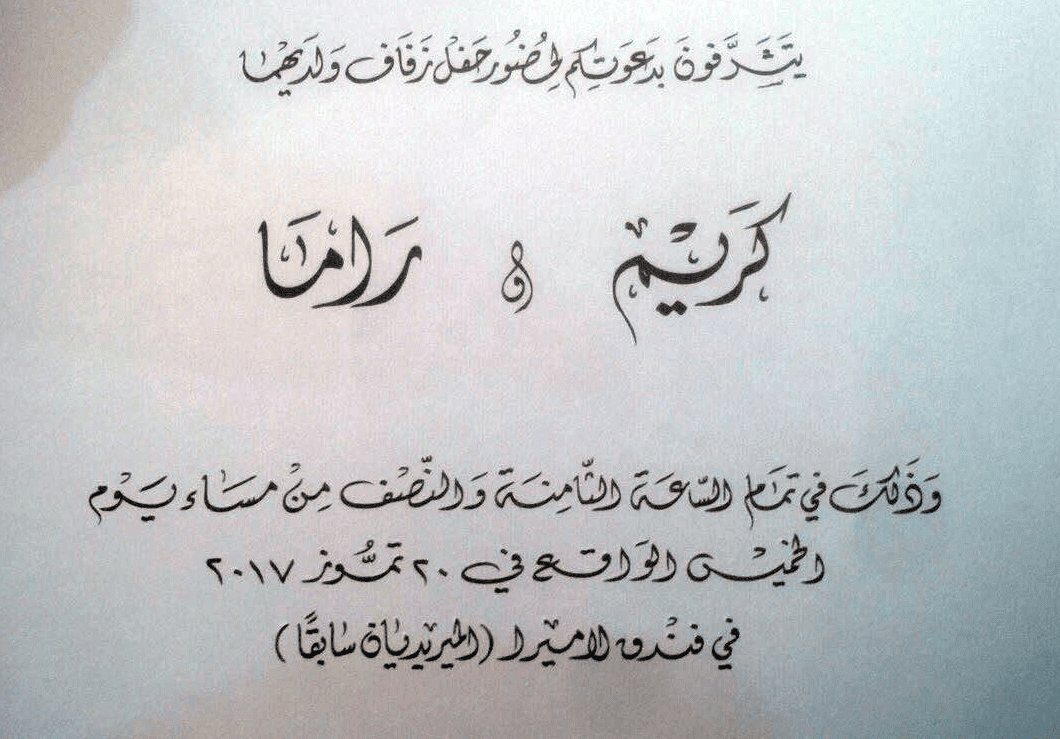 يتشرفون بدعوتكم لحضور حفل زفاف ولديهما
كريم و راما
وذلك في تمام الساعة الثامنة والنصف من مساء يوم
الخميس الواقع في ٢٠ تموز ٢٠١٧
في فندق الاميرا (الميريديان سابقًا)